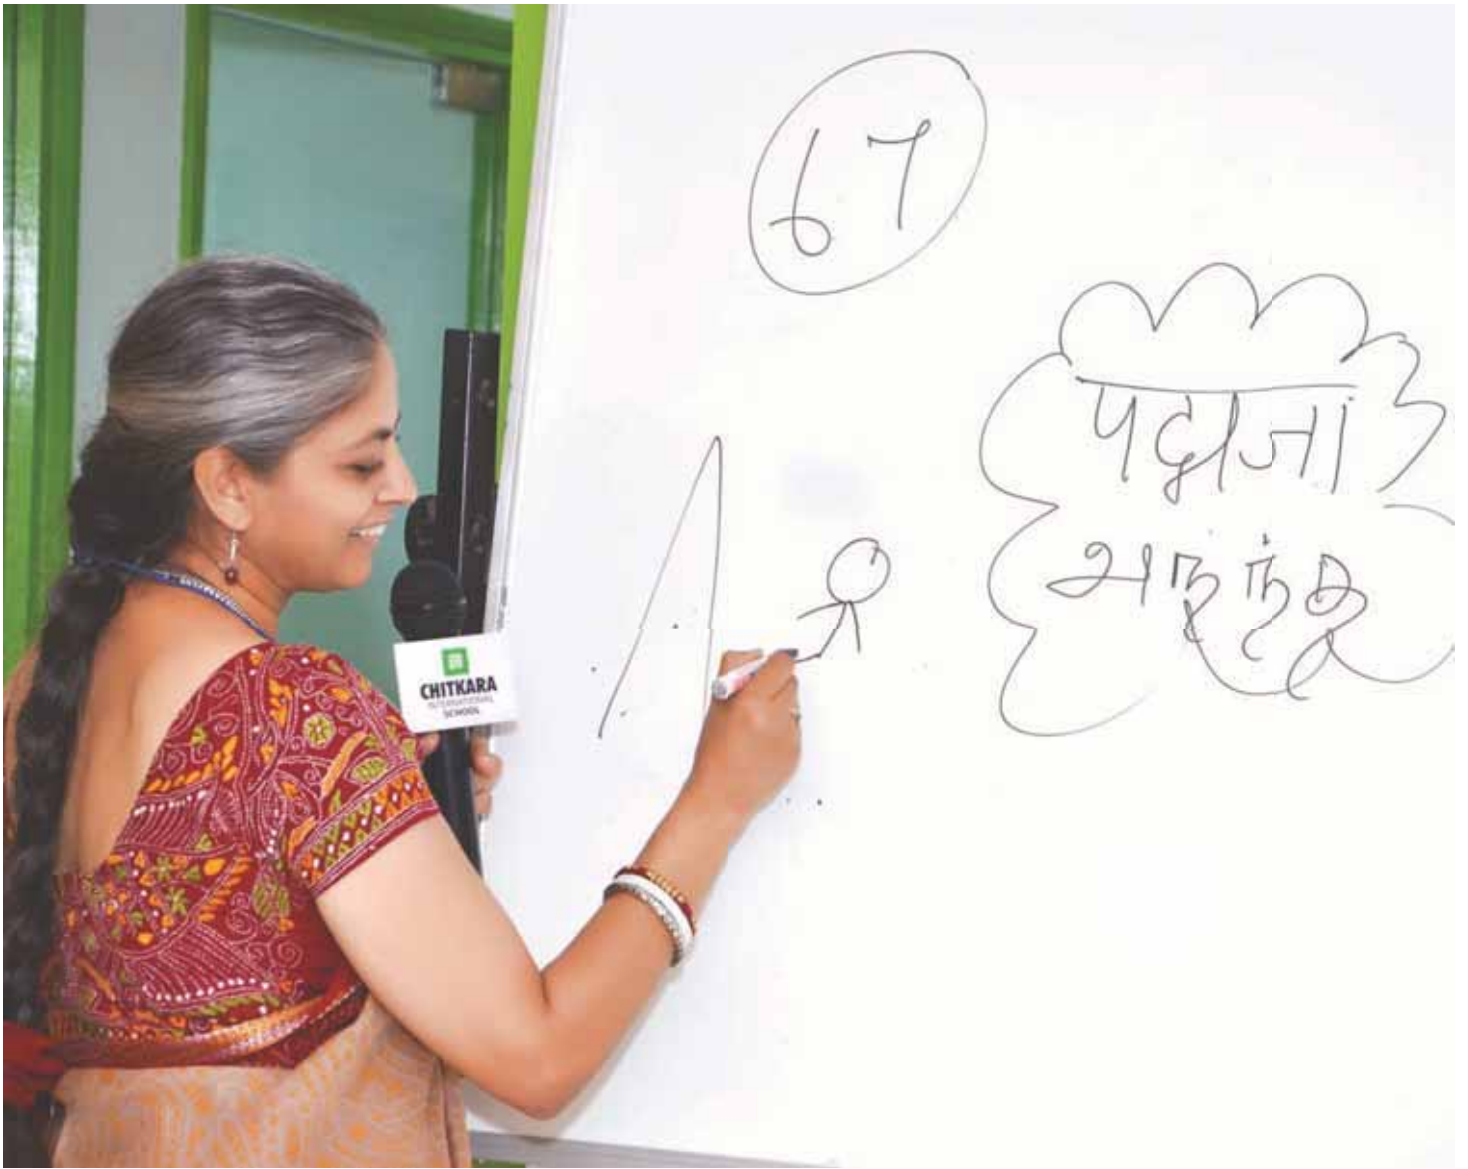 67
पद्मजा
அநந்த
CHITKARA
INTERNATIONAL
SCHOOL